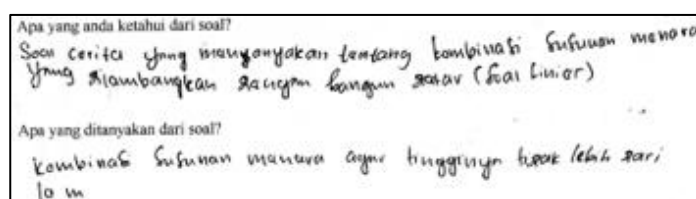 Apa yang anda ketahui dari soal?
Soal cerita yang menyanyakan tentang kombinasi susunan menara
yang dilambangkan dengan bangun datar (Soal Linier)
Apa yang ditanyakan dari soal?
kombinasi susunan menara agar tingginya tidak lebih dari
10 m